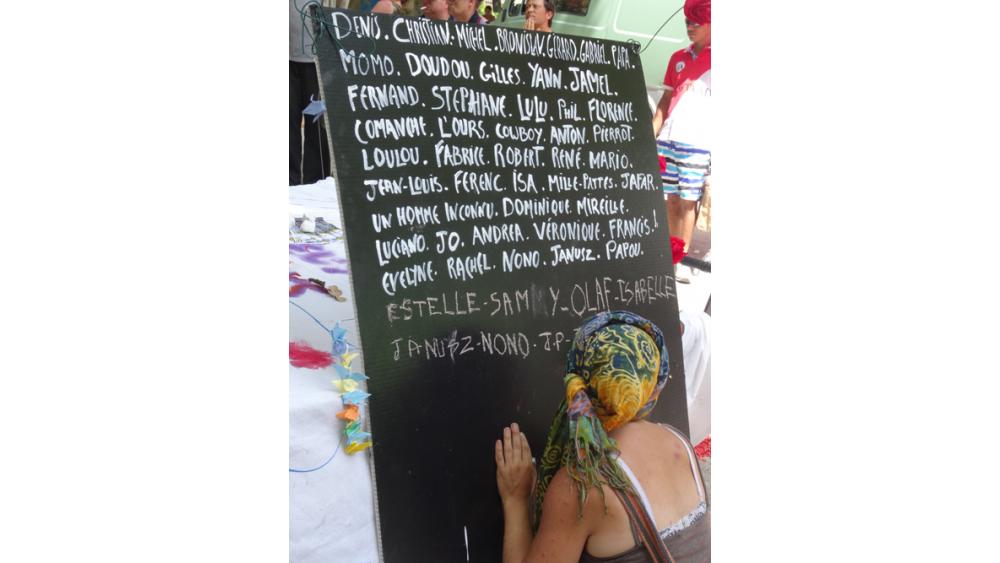 DENIS. CHRISTIAN. MICHEL. BRONISLAV. GERARD. GABRIEL. PAPA.
MOMO. DOUDOU. GILLES. YANN. JAMEL.
FERNAND. STEPHANE. LULU. PHIL. FLORENCE.
COMANCHE. L'OURS. COWBOY. ANTON. PIERROT.
LOULOU. FABRICE. ROBERT. RENÉ. MARIO.
JEAN-LOUIS. FERENC. ISA. MILLE-PATTES. JAFAR.
UN HOMME INCONNU. DOMINIQUE. MIREILLE.
LUCIANO. JO. ANDREA. VÉRONIQUE. FRANCIS.!
EVELYNE. RACHEL. NONO. JANUSZ. PAPOU.
ESTELLE-SAMMY-OLAF-ISABELLE
JANUSZ-NONO-J.P-